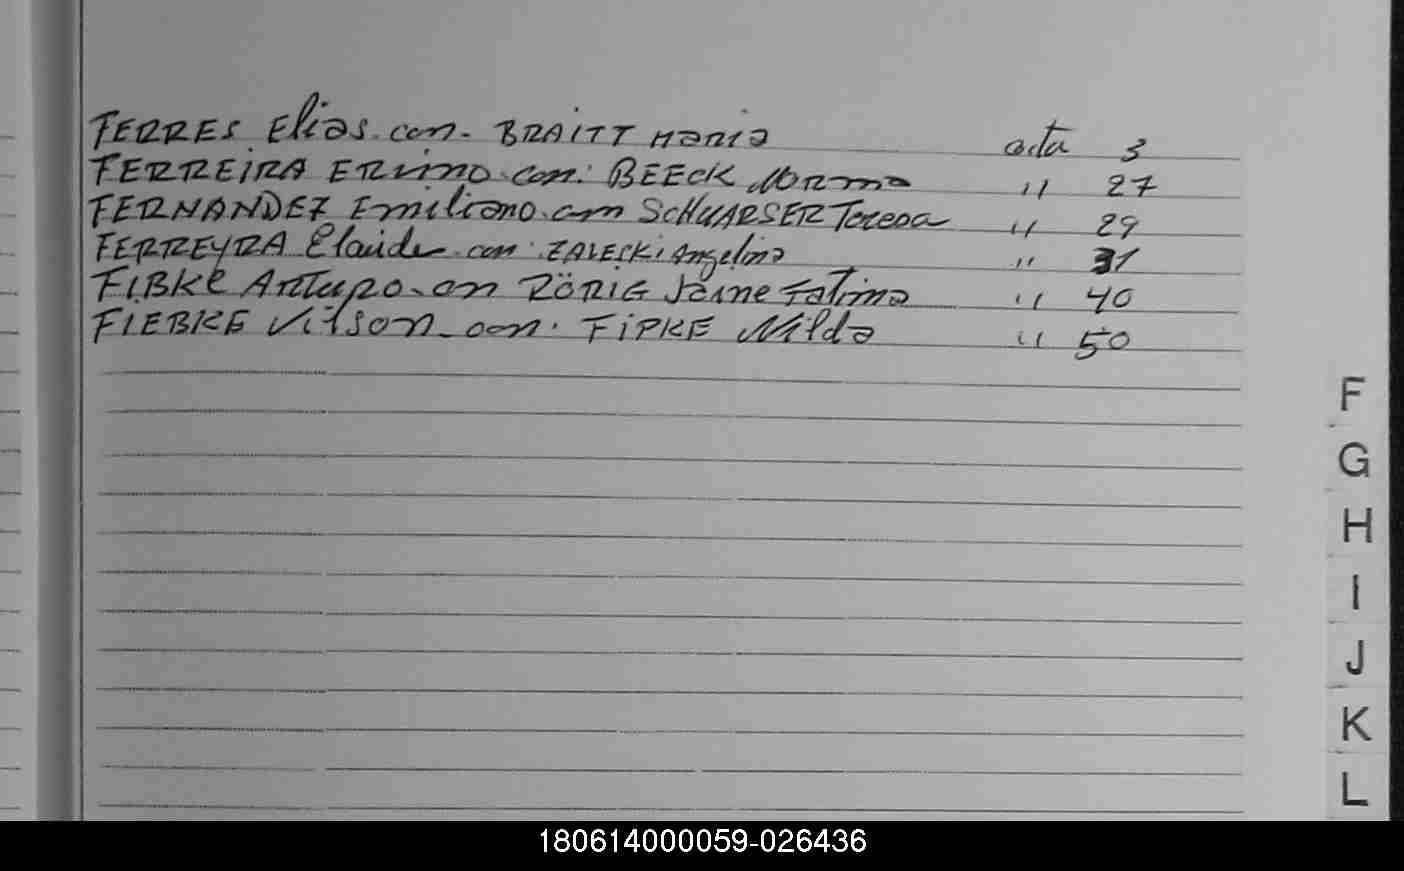 FERRES Elias con BRAITT Maria acta 3
FERREIRA ERvino con: BEECK NORma " 27
FERNANDEZ Emiliano con SCHUARSER Teresa " 29
FERREYRA Elaide con ZALESKi Angelina " 31
FIBKE ARTURO con RÖRIG Jaine Fatima " 40
FIEBKE Vilson con. FiPKE Nilda " 50
F
G
H
I
J
K
L
180614000059-026436